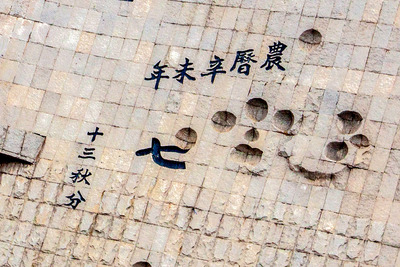 農曆辛未年
七
十三秋分